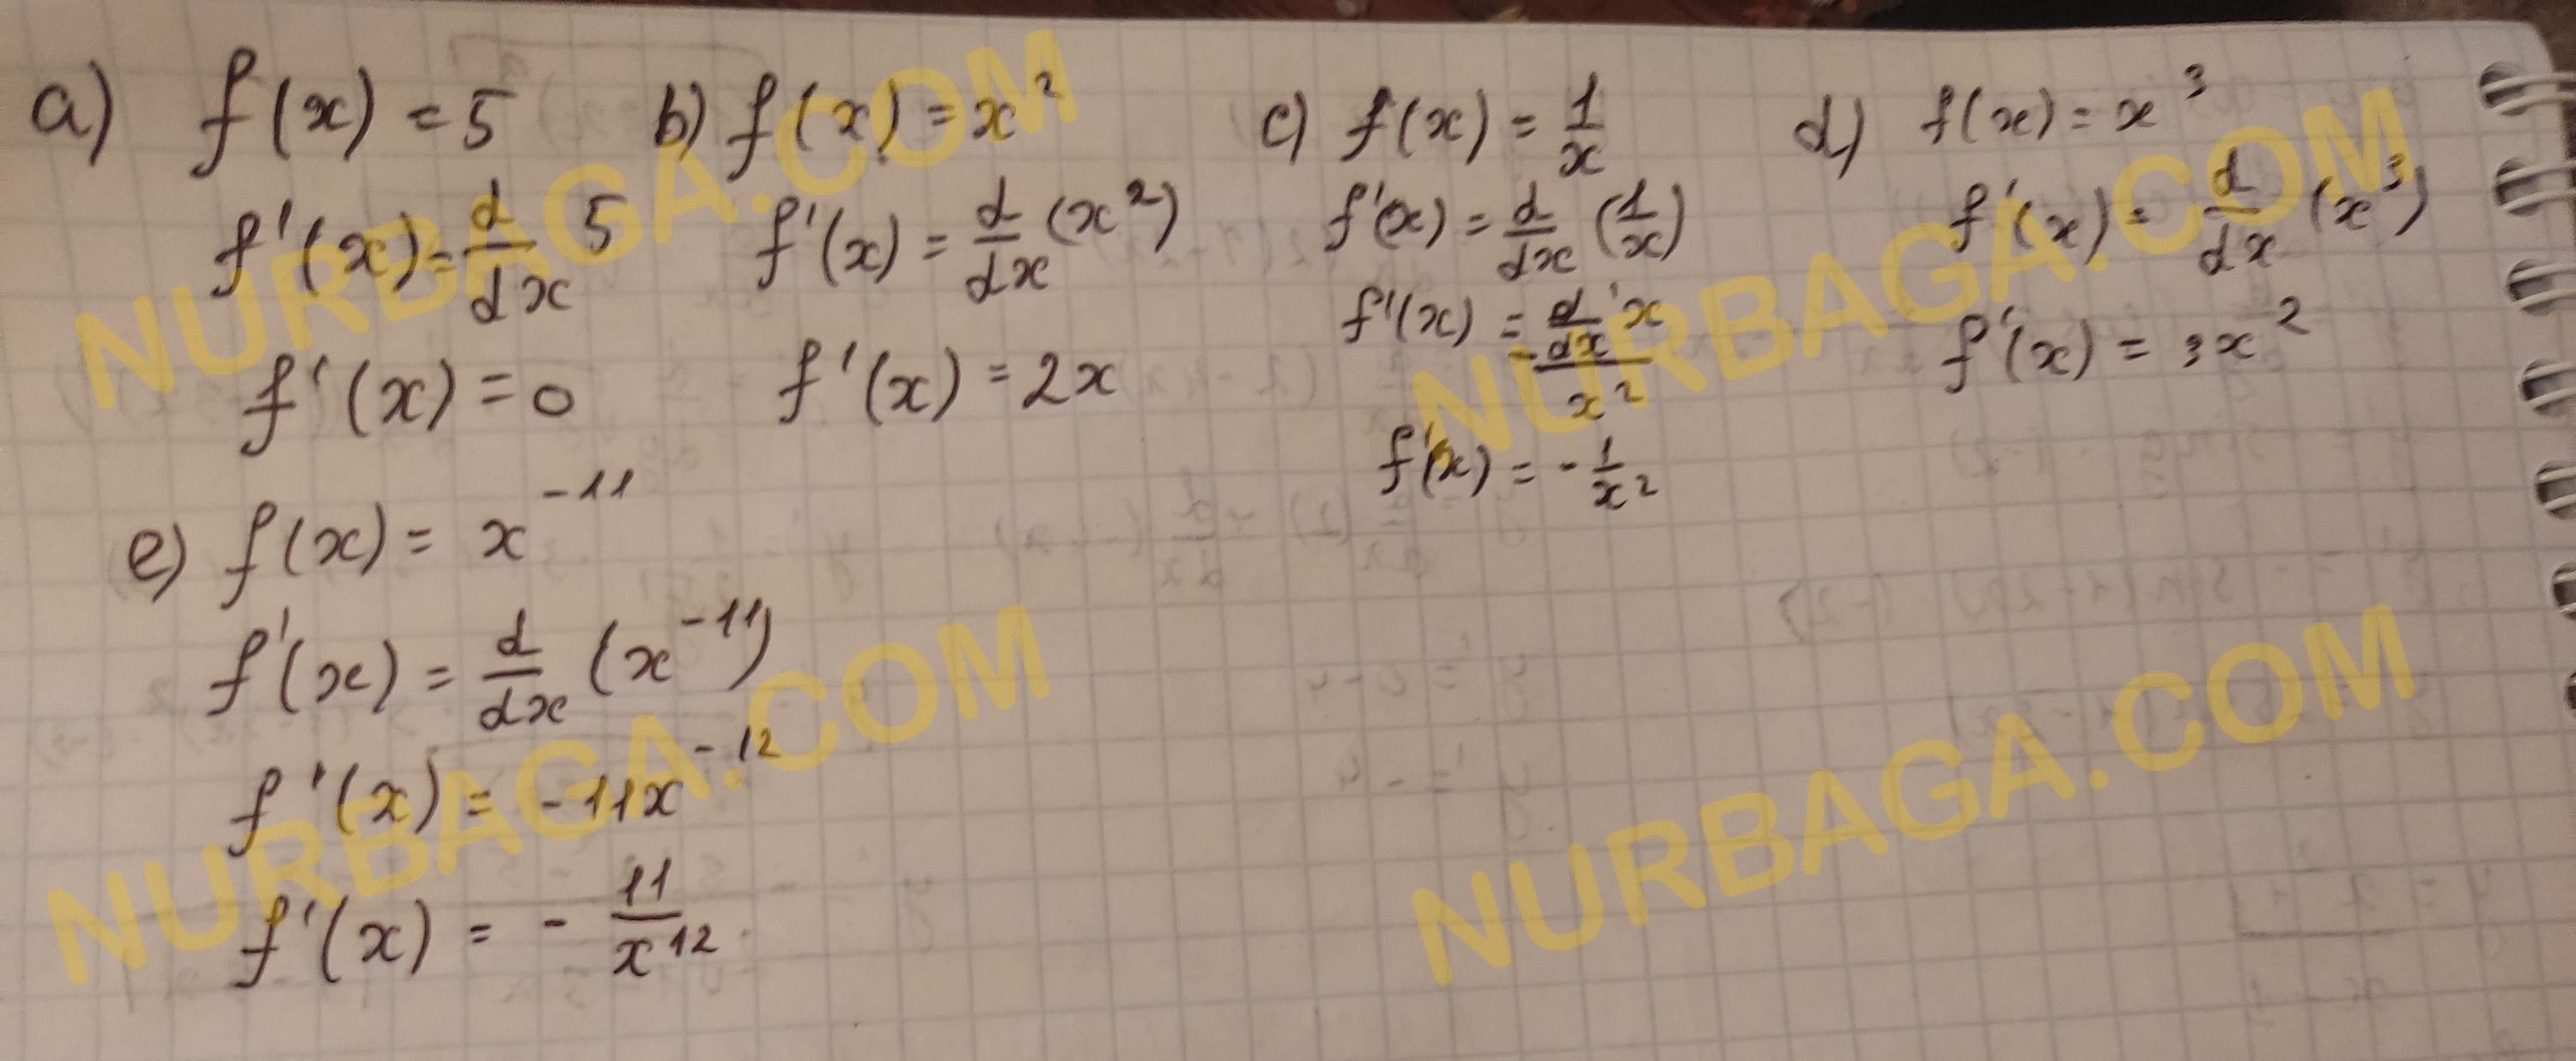 a) f(x) = 5
f'(x) = d/dx 5
f'(x) = 0
b) f(x) = x²
f'(x) = d/dx (x²)
f'(x) = 2x
c) f(x) = 1/x
f'(x) = d/dx (1/x)
f'(x) = - d/dx x / x²
f'(x) = - 1/x²
d) f(x) = x³
f'(x) = d/dx (x³)
f'(x) = 3x²
e) f(x) = x⁻¹¹
f'(x) = d/dx (x⁻¹¹)
f'(x) = -11x⁻¹²
f'(x) = - 11/x¹²
NURBAGA.COM
NURBAGA.COM
NURBAGA.COM
NURBAGA.COM